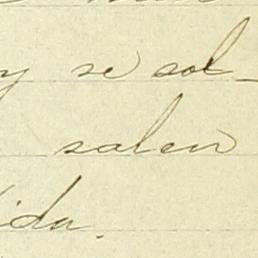 y se sol-
salen
ida.